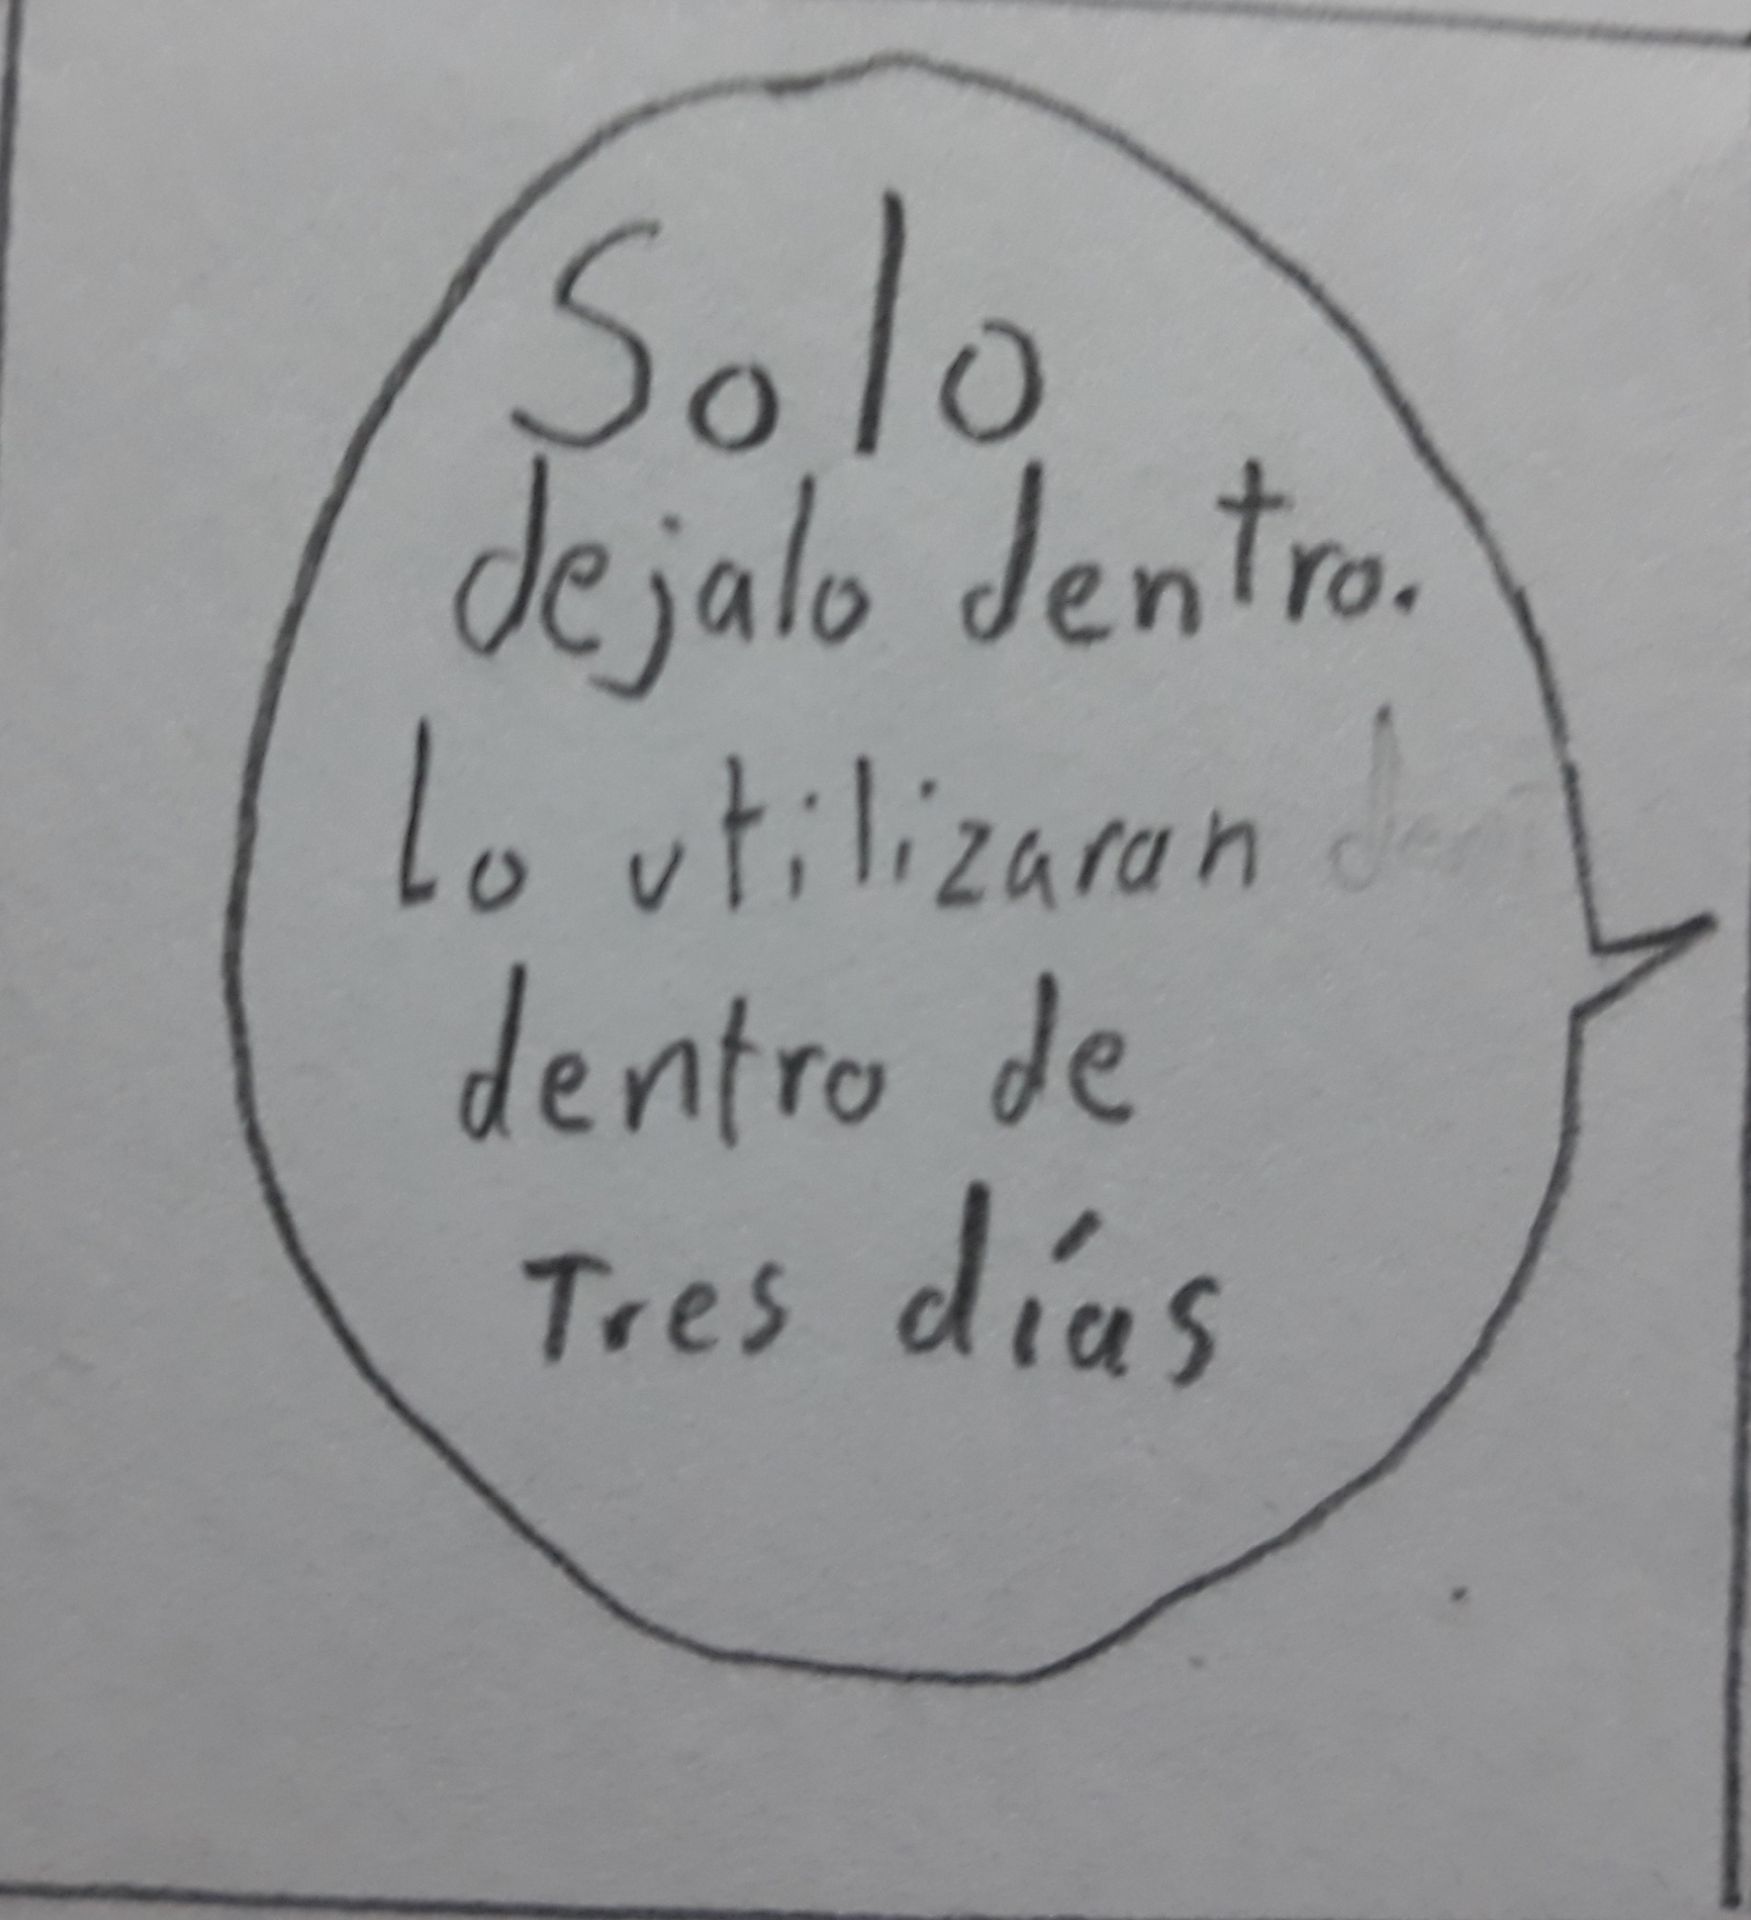 Solo
dejalo dentro.
Lo utilizaran
dentro de
Tres días